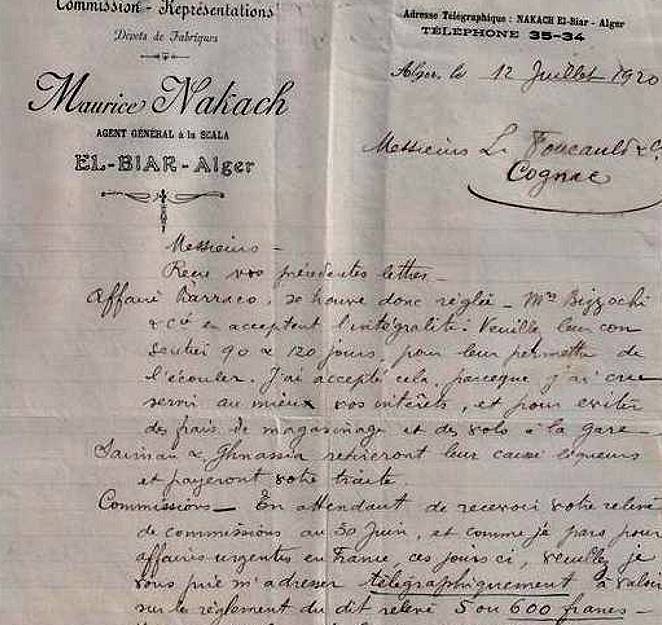 Commission - Représentations
Dépots de Fabriques
Maurice Nakach
AGENT GÉNÉRAL à la SCALA
EL-BIAR-Alger
Adresse Télégraphique : NAKACH El-Biar - Alger
TÉLÉPHONE 35-34
Alger, le 12 Juillet 1920
Messieurs L. Foucauld & C.
Cognac
Messieurs -
Reçu vos précédentes lettres -
Affaire Barraco, se trouve donc réglée - Mrs Bizzochi
& Cie en acceptent l'intégralité. Veuillez leur con
sentir 90 à 120 jours, pour leur permettre de
l'écouler. J'ai accepté cela, parceque j'ai cru
servir au mieux vos intérêts, et pour eviter
des frais de magasinage et des vols à la gare
& Ghnassia retireront leur caisse liqueurs
et payeront votre traite.
Commissions - En attendant de recevoir votre relevé
de commissions au 30 Juin, et comme je pars pour
affaires urgentes en France ces jours ci, veuillez je
vous prie m'adresser télégraphiquement à valoir
sur le règlement du dit relevé 5 ou 600 francs -